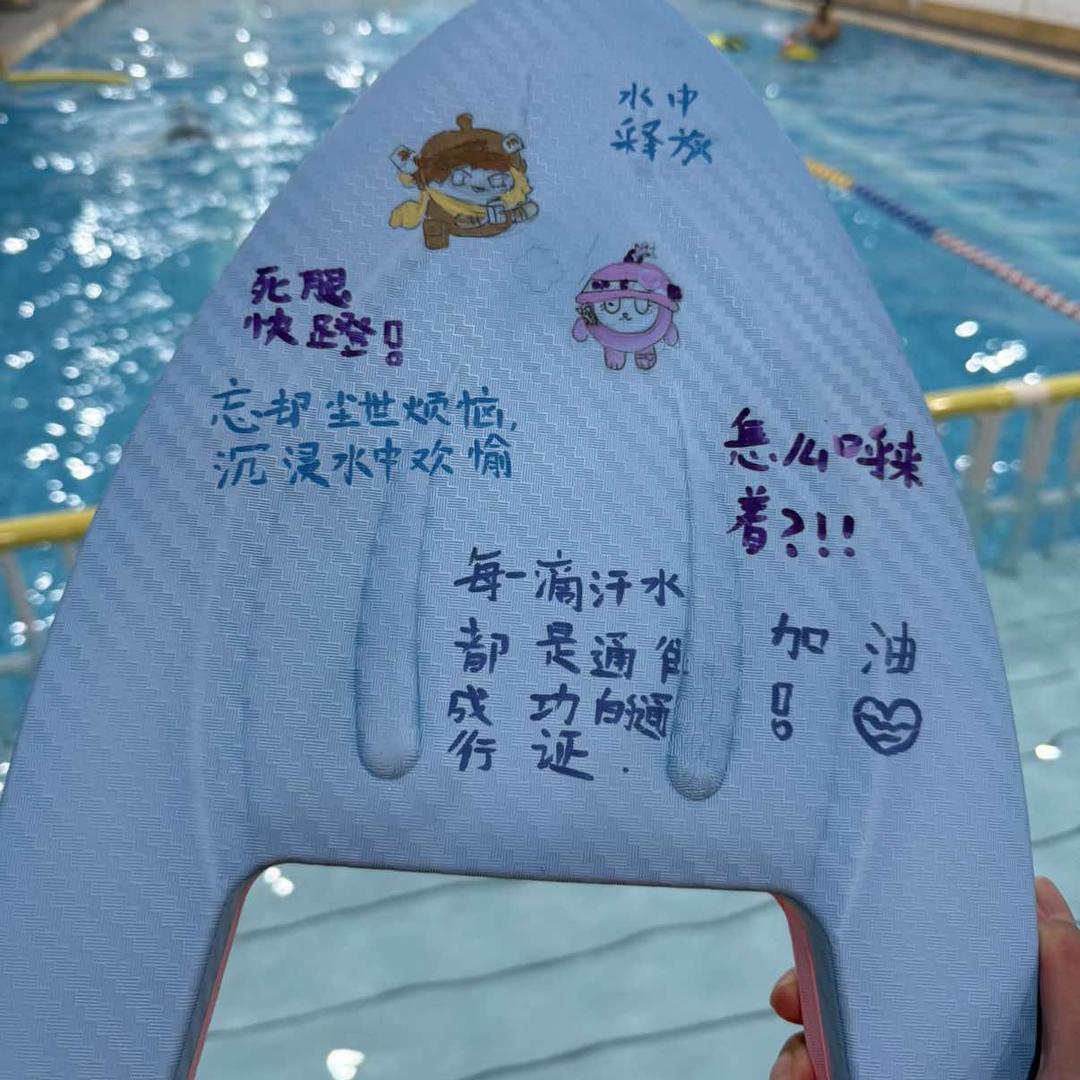 水中
释放
死腿
快蹬!
忘却尘世烦恼,
沉浸水中欢愉
怎么呼来
着?!!
每一滴汗水
都是通往
成功的通
行证.
加油
!